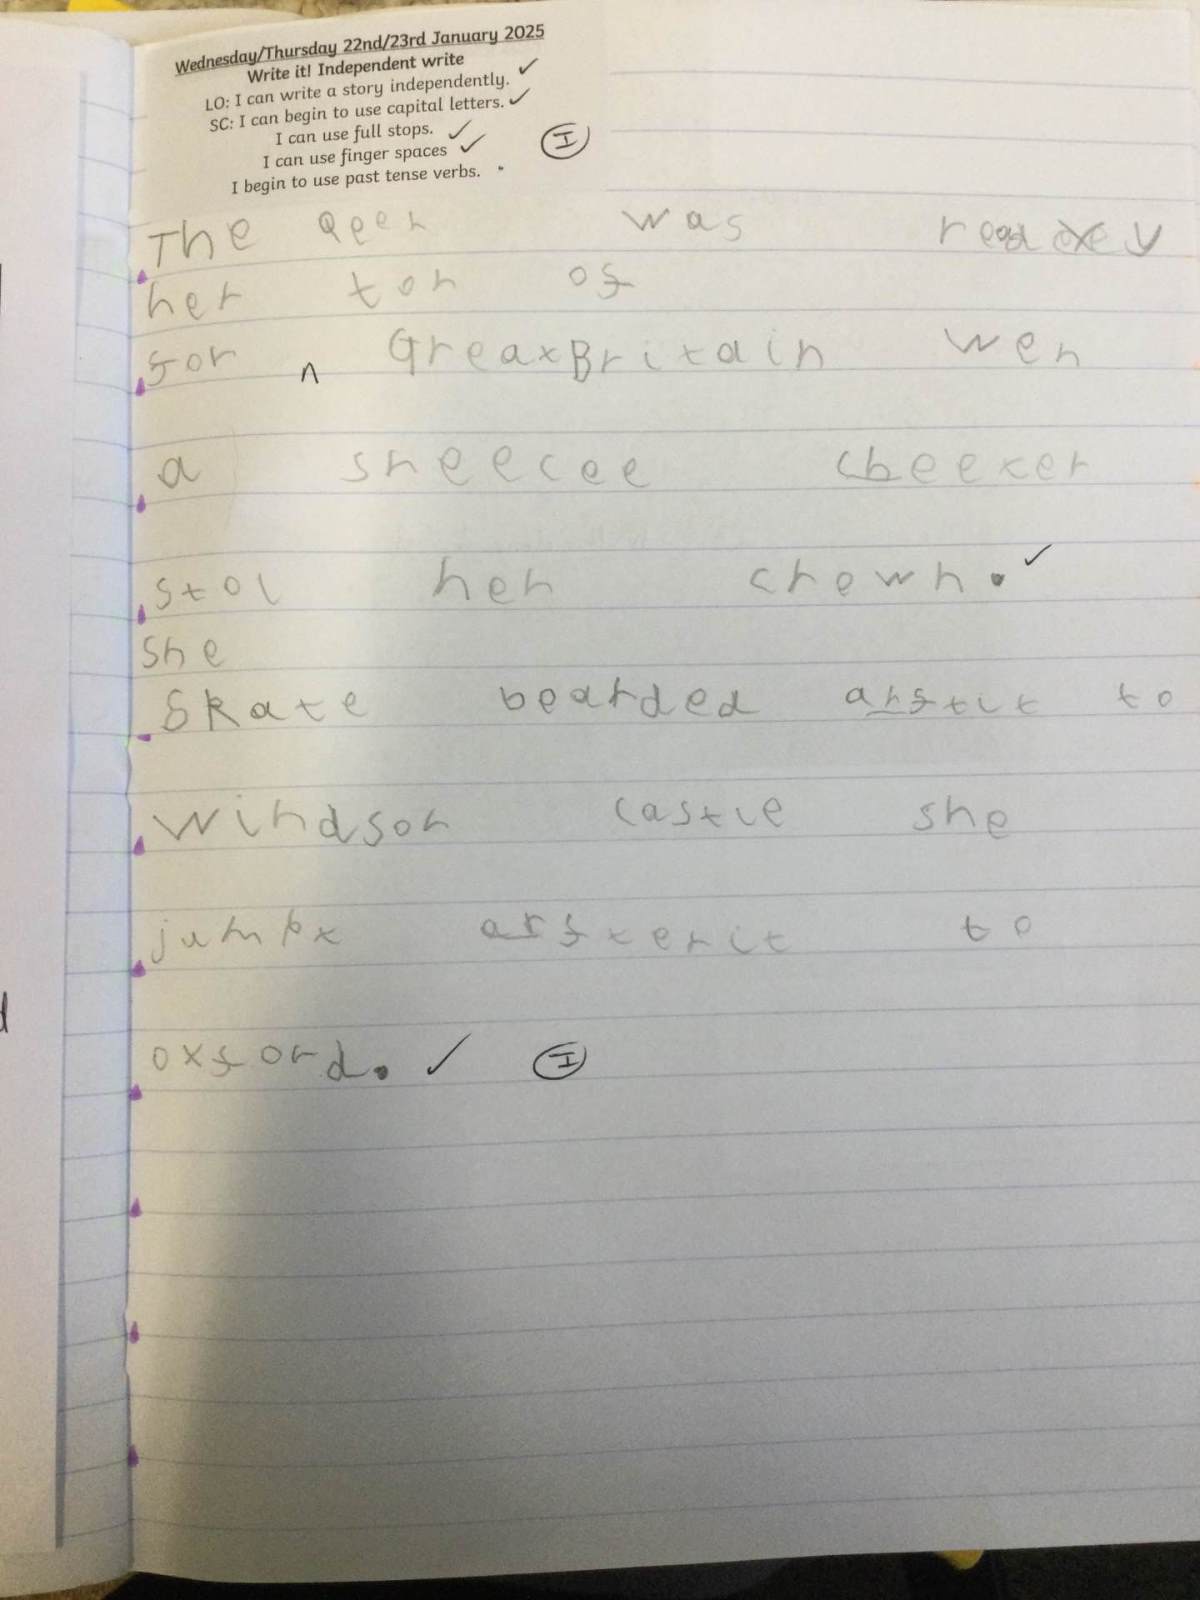 Wednesday/Thursday 22nd/23rd January 2025
Write it! Independent write
LO: I can write a story independently. ✓
SC: I can begin to use capital letters. ✓
I can use full stops. ✓
I can use finger spaces ✓
I begin to use past tense verbs. •
I
The Qeen was
her ton of
for ^ Great Britain wen
a sneecee cheeter
stol her crown. ✓
she
Skate bearded arftit to
Windsor castle she
jumpt arfterit to
oxford. ✓ I
d